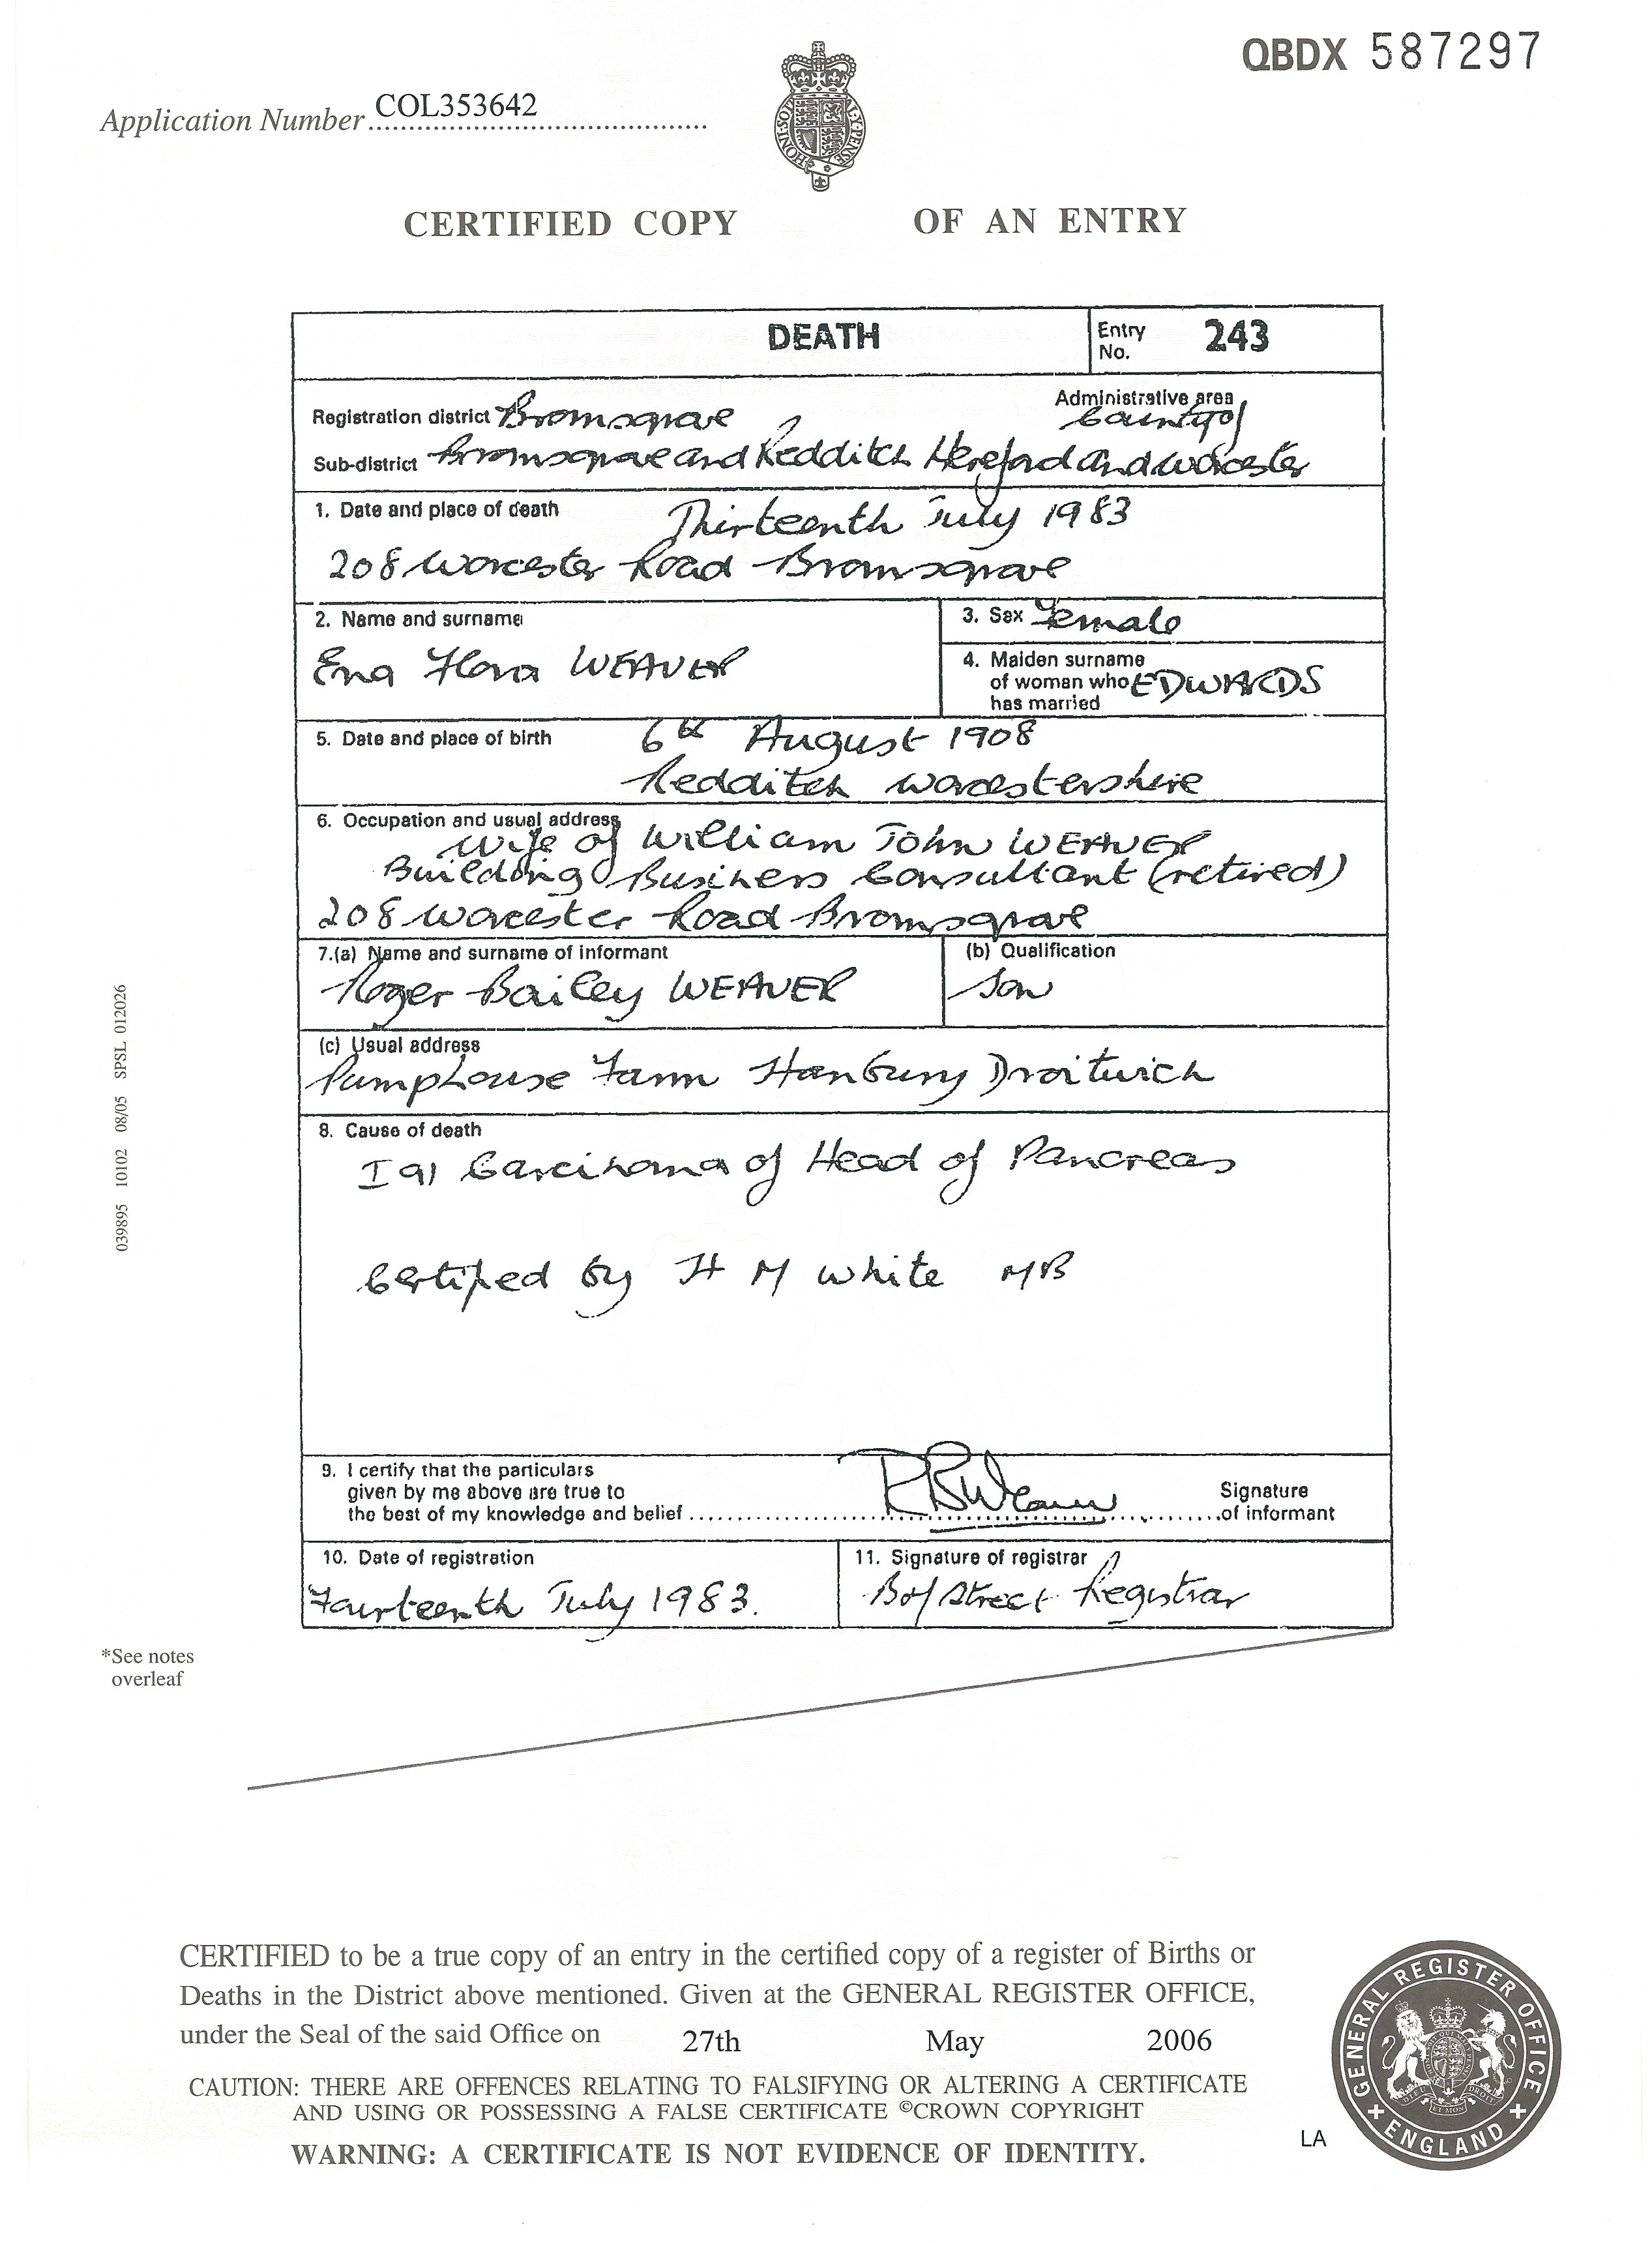 QBDX 587297
Application Number COL353642
HONI·SOIT·QUI·MAL·Y·PENSE
CERTIFIED COPY OF AN ENTRY
DEATH
Entry No. 243
Registration district Bromsgrove
Administrative area County of
Sub-district Bromsgrove and Redditch Hereford and Worcester
1. Date and place of death Thirteenth July 1983
208 Worcester Road Bromsgrove
2. Name and surname
Ena Flora WEAVER
3. Sex Female
4. Maiden surname
of woman who EDWARDS
has married
5. Date and place of birth 6th August 1908
Redditch Worcestershire
6. Occupation and usual address
Wife of William John WEAVER
Building Business Consultant (retired)
208 Worcester Road Bromsgrove
7.(a) Name and surname of informant
Roger Bailey WEAVER
(b) Qualification
Son
(c) Usual address
Pumphouse Farm Hanbury Droitwich
8. Cause of death
I a) Carcinoma of Head of Pancreas
Certified by H M White MB
9. I certify that the particulars
given by me above are true to
the best of my knowledge and belief
R B Weaver
Signature
of informant
10. Date of registration
Fourteenth July 1983.
11. Signature of registrar
Street Registrar
039895 10102 08/05 SPSL 012026
*See notes
overleaf
CERTIFIED to be a true copy of an entry in the certified copy of a register of Births or
Deaths in the District above mentioned. Given at the GENERAL REGISTER OFFICE,
under the Seal of the said Office on 27th May 2006
CAUTION: THERE ARE OFFENCES RELATING TO FALSIFYING OR ALTERING A CERTIFICATE
AND USING OR POSSESSING A FALSE CERTIFICATE ©CROWN COPYRIGHT
WARNING: A CERTIFICATE IS NOT EVIDENCE OF IDENTITY.
LA
GENERAL REGISTER OFFICE
ENGLAND